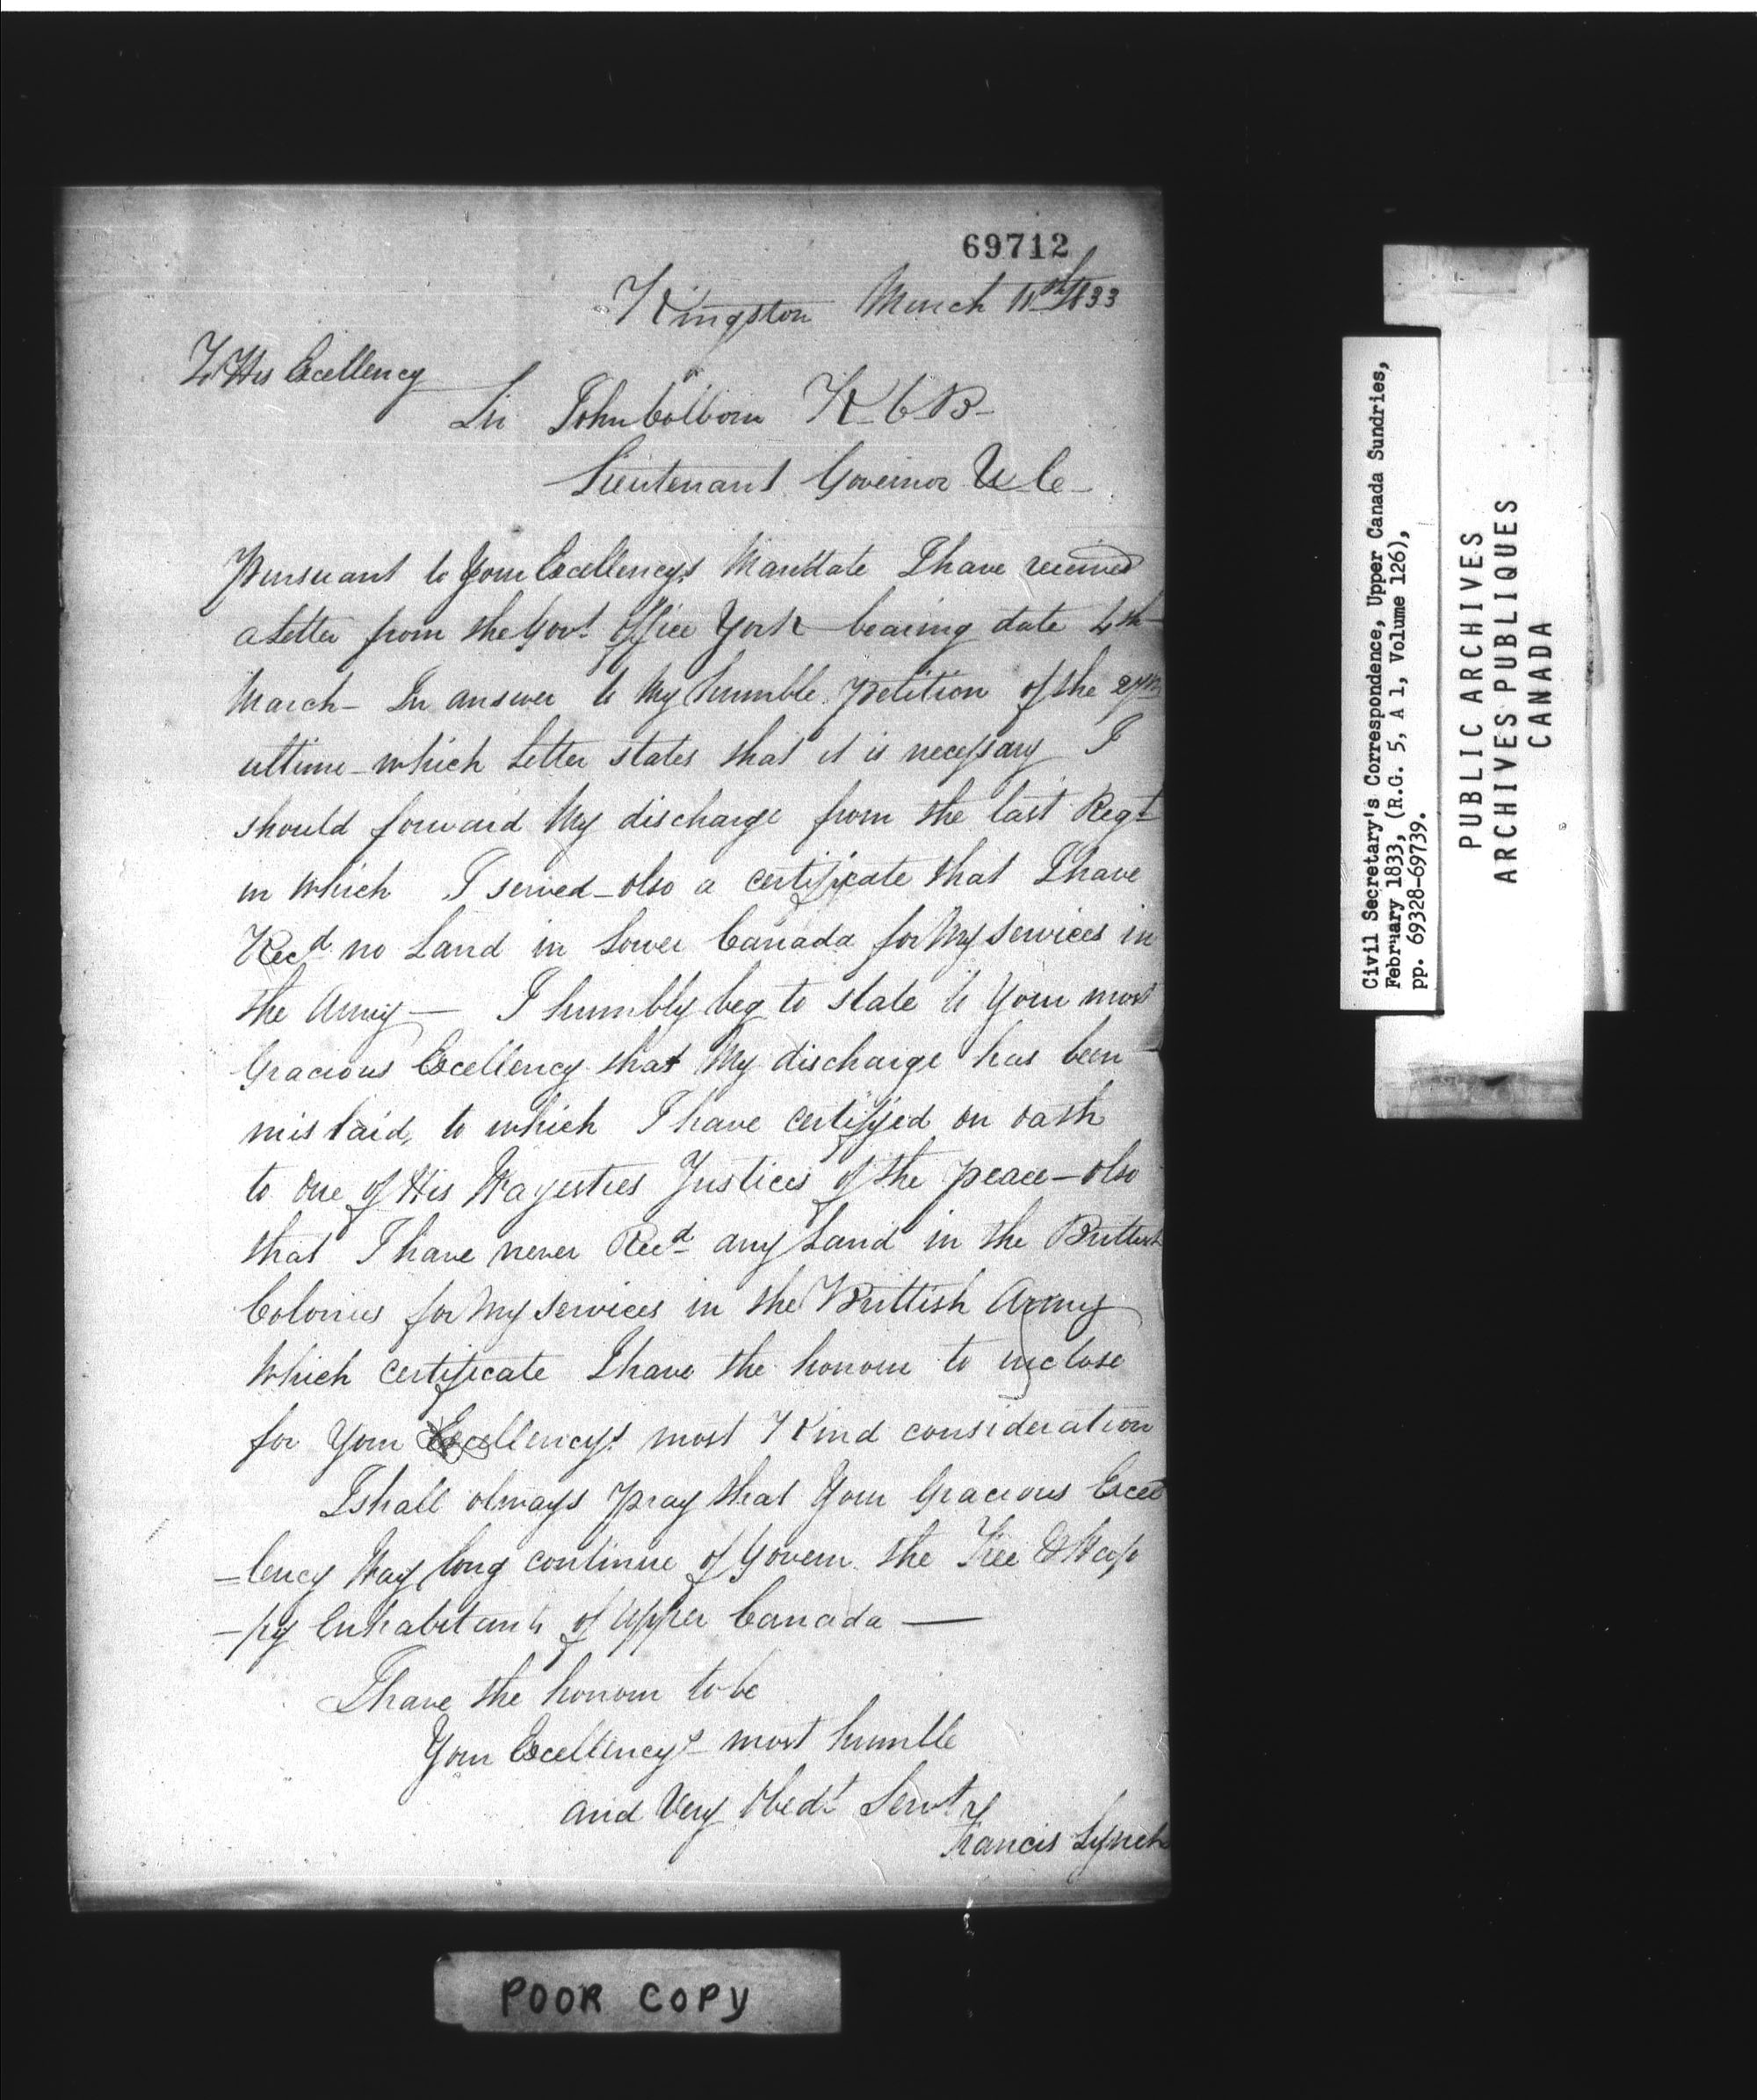 69712
Kingston March 11th 1833
To His Excellency
Sir John Colborn K C B -
Lieutenant Governor U C -
Pursuant to Your Excellencys Mandate I have received
a Letter from the Govt. Office York bearing date 4th
March - In answer to My humble petition of the
ultimo - which Letter states that it is necessary I
should forward My discharge from the last Regt
in which I served - also a certificate that I have
Recd no Land in Lower Canada for My Services in
the Army — I humbly beg to state to Your most
Gracious Excellency that My discharge has been
mislaid, to which I have certifyed on oath
to one of His Majesties Justices of the peace - also
that I have never Recd any Land in the Brittish
Colonies for My Services in the Brittish Army
Which Certificate I have the honour to inclose
for Your Excellencys most Kind consideration
I shall always pray that Your Gracious Excel
=lency May long continue of Govern the Free & Hap
-py Inhabitants of Upper Canada —
I have the honour to be
Your Excellencys most humble
and Very Obedt. Servt.
Francis Lynch
POOR COPY
Civil Secretary's Correspondence, Upper Canada Sundries,
February 1833, (R.G. 5, A 1, Volume 126),
pp. 69328-69739.
PUBLIC ARCHIVES
ARCHIVES PUBLIQUES
CANADA